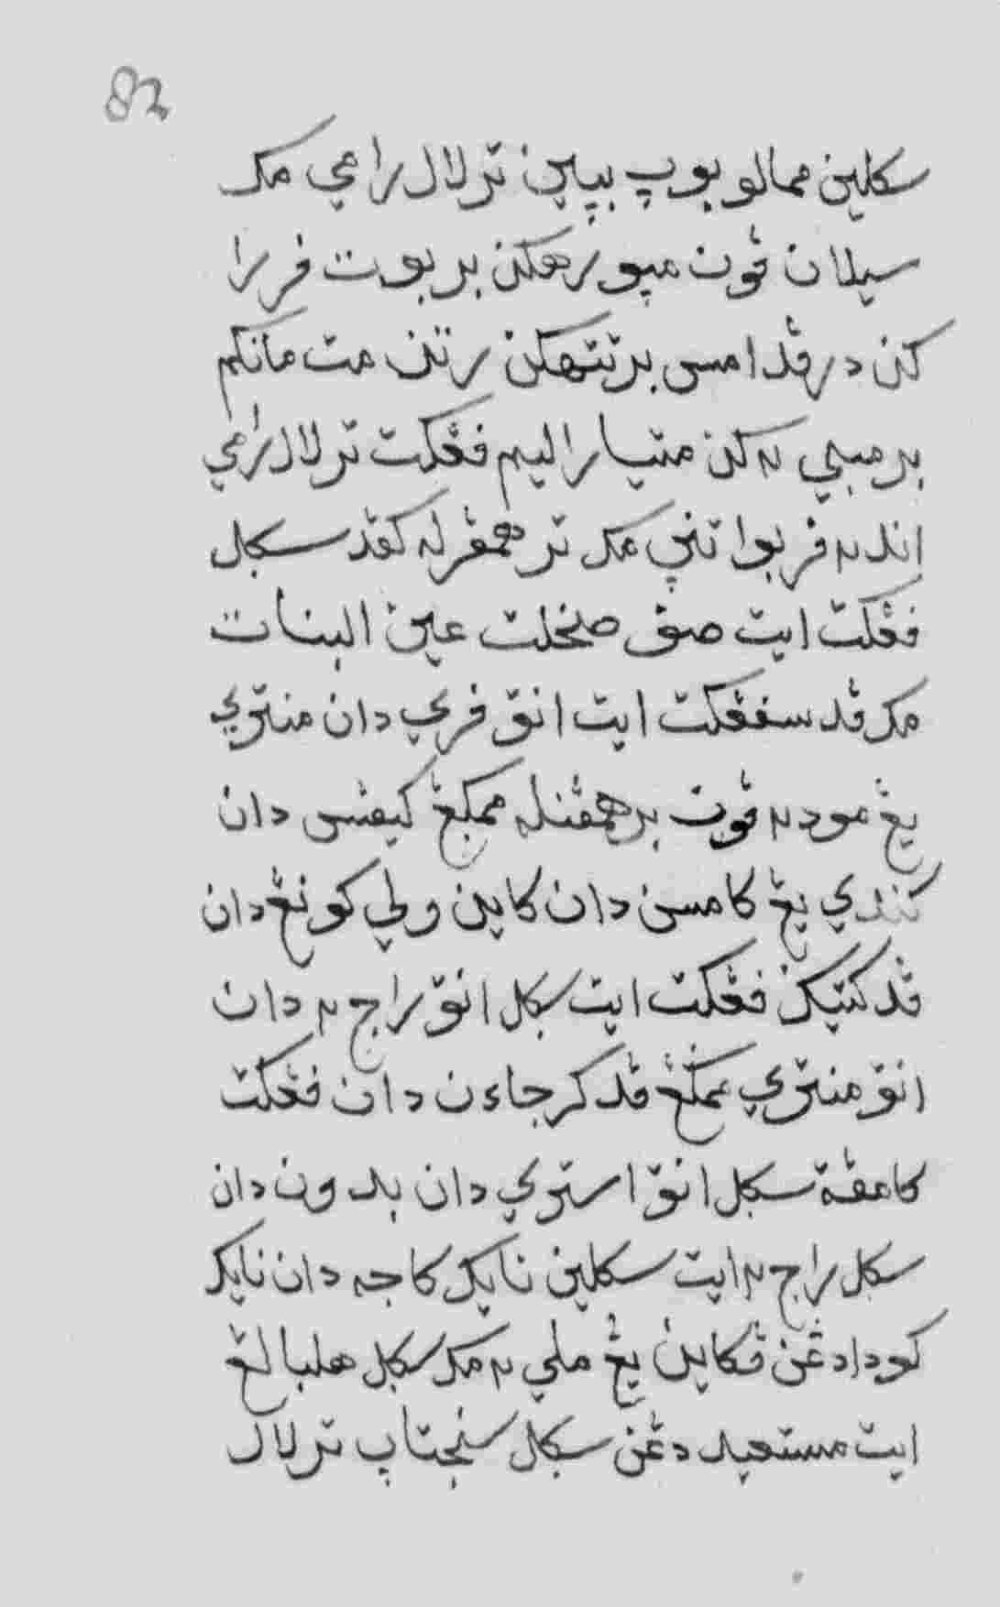 82
سكلين ممالو بوڽ بڽاين ترلالو رامي مك
سيلان ڤون مڽورهكن بربوت فررا
كن درڤد امس برتتهكن رتن مت مانكم
برمبي ٢كن متيارا اليم فڠكت ترلال رامي
انده٢ فربواتنڽ مك ترهمڤرله كڤد سكل
فڠكت ايت صف صنحلت عين البنات
مك ڤد سفڠكت ايت انق فري دان منتري
يڠ مود٢ ڤون برهمڤنله ممكڠ كيفس دان
كندي يڠ كامسن دان كاين ولي كونڠ دان
ڤد كتيك فڠكت ايت سكل انق راج٢ دان
انق منتري ممكڠ ڤد كرجاءن دان فڠكت
كامڤة سكل انق استري دان بدون دان
سكل راج٢ ايت سكلين نايك كاجه دان نايك
كودا دڠن ڤكاين يڠ ملي٢ مك سكل هلبالڠ
ايت مستعيد دڠن سكل سنجتاڽ ترلال